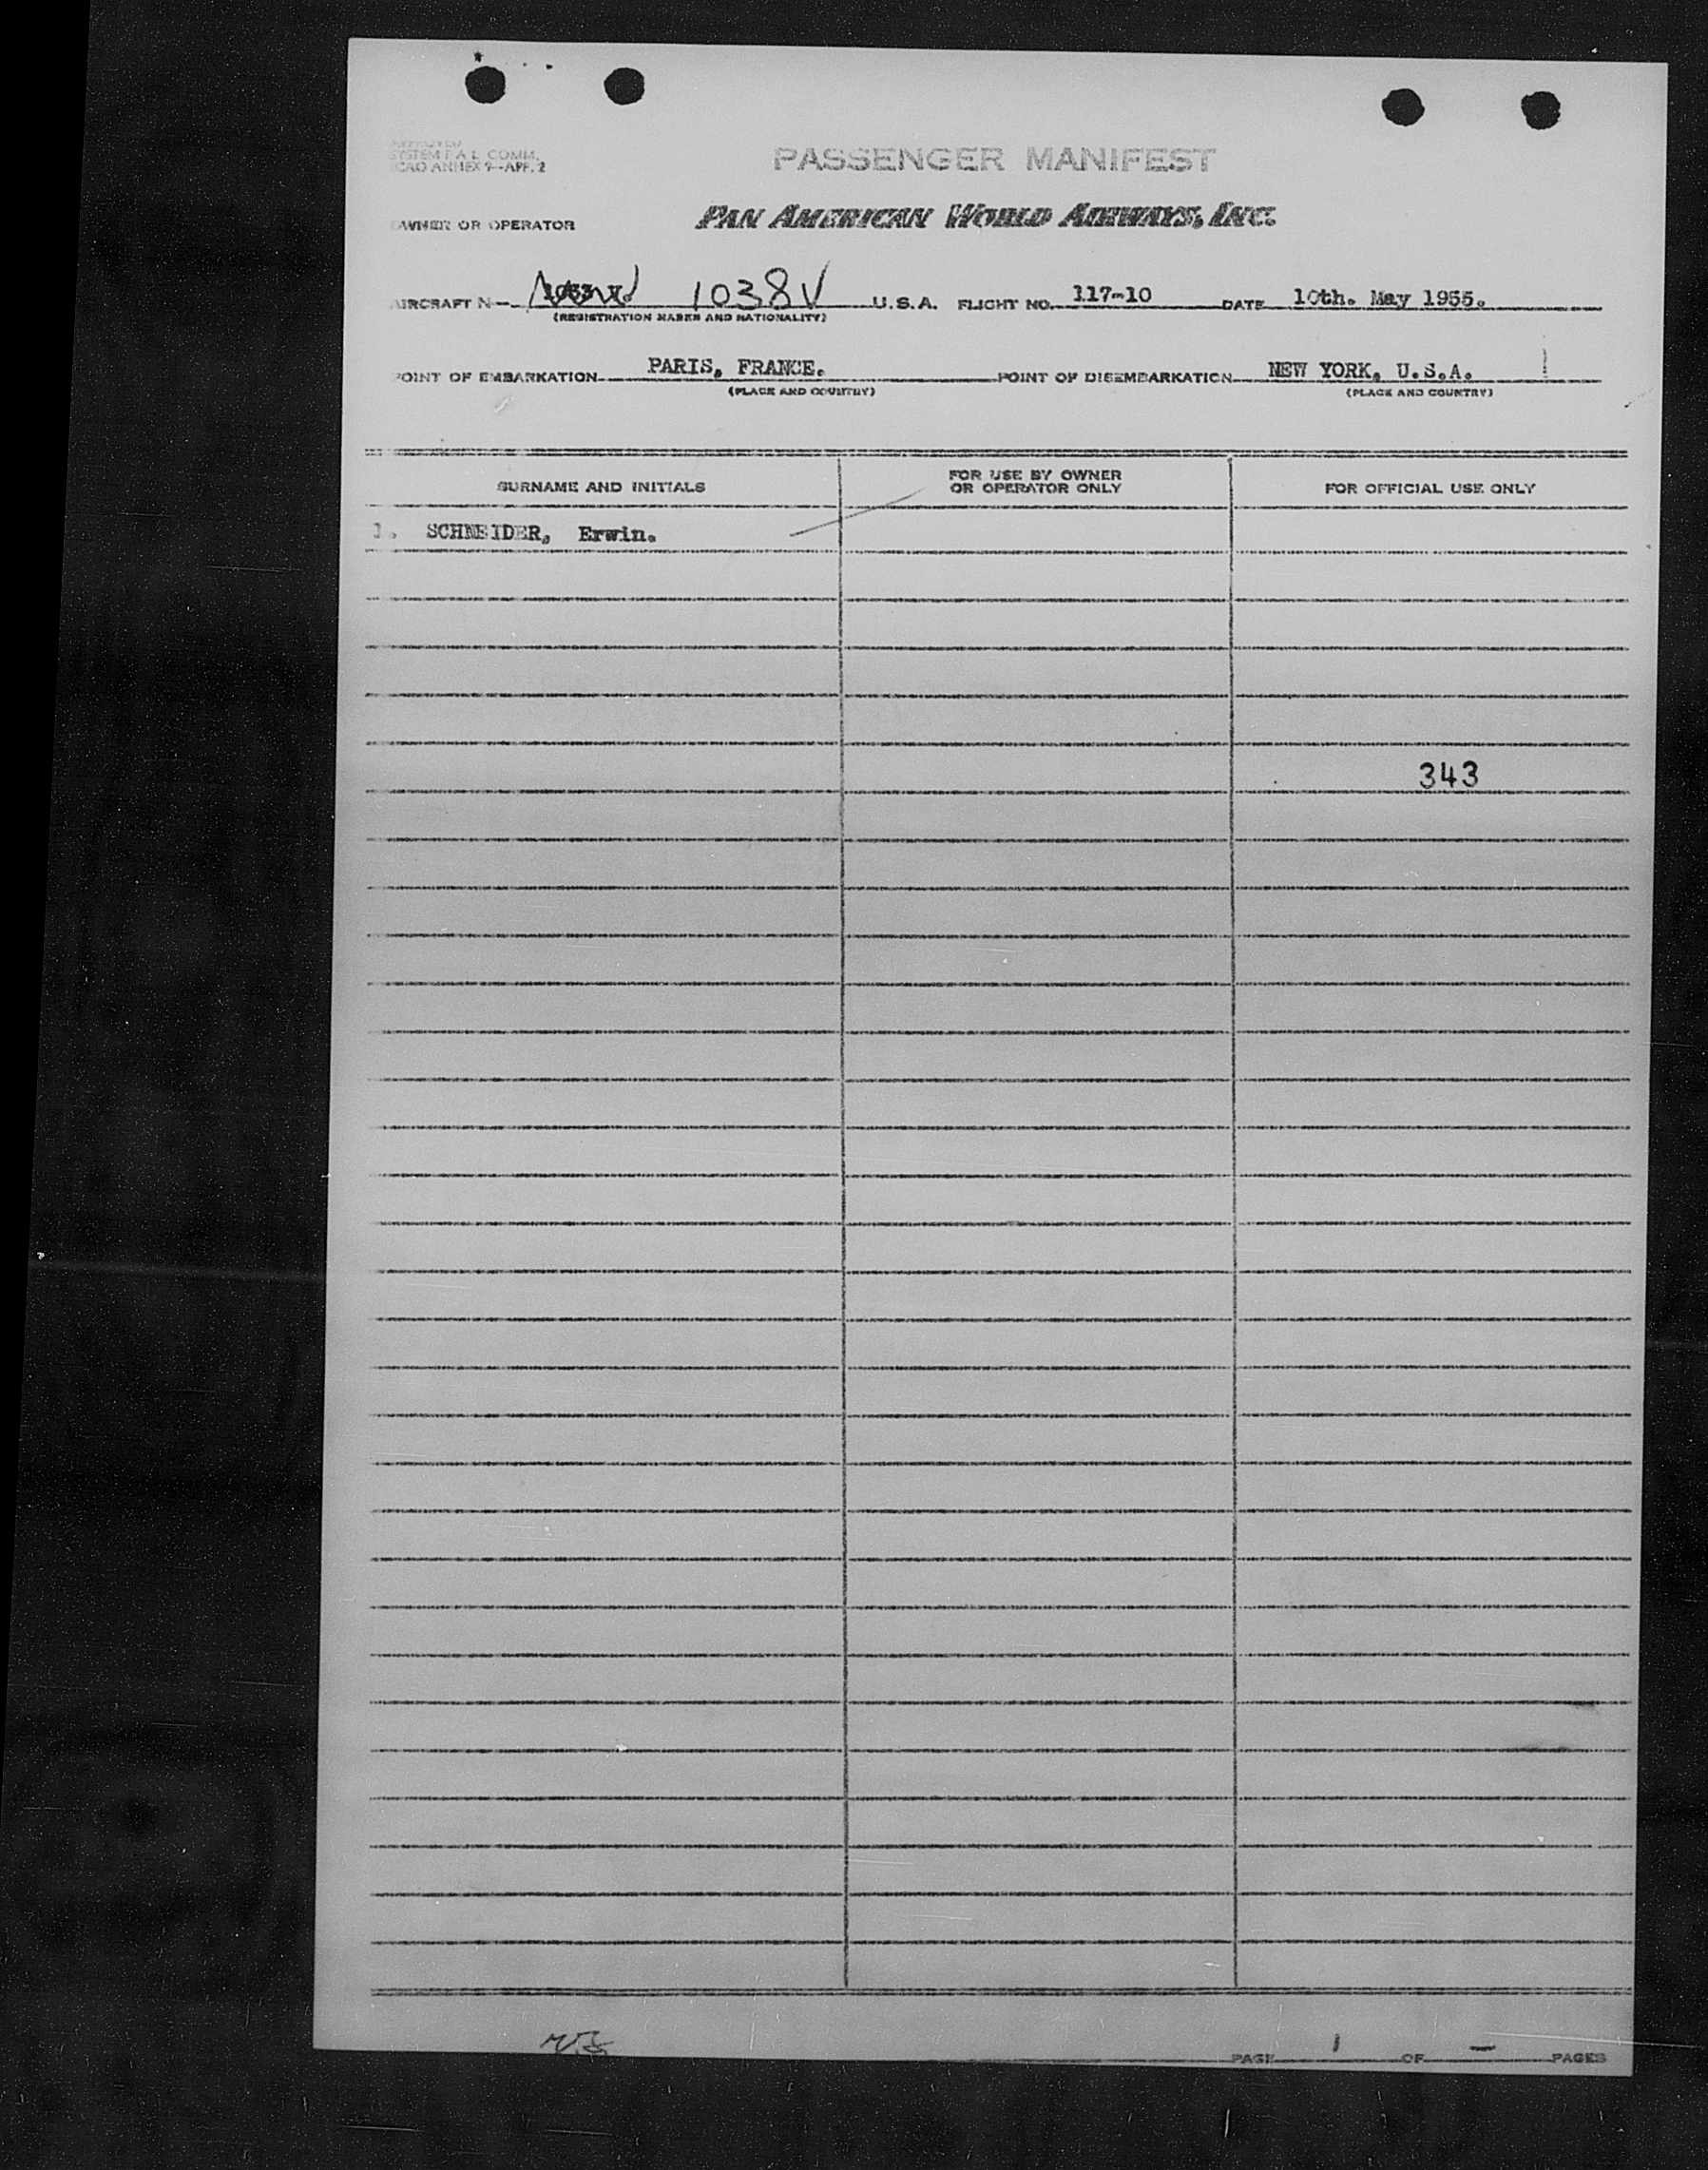 SYSTEM F.A.L. COMM.
ICAO ANNEX 9—APP. 2
PASSENGER MANIFEST
OWNER OR OPERATOR PAN AMERICAN WORLD AIRWAYS, INC.
AIRCRAFT N— 1038V U.S.A. FLIGHT NO. 117-10 DATE 10th. May 1955.
(REGISTRATION MARKS AND NATIONALITY)
POINT OF EMBARKATION PARIS, FRANCE. POINT OF DISEMBARKATION NEW YORK, U.S.A. 1
(PLACE AND COUNTRY) (PLACE AND COUNTRY)
SURNAME AND INITIALS FOR USE BY OWNER OR OPERATOR ONLY FOR OFFICIAL USE ONLY
1. SCHNEIDER, Erwin.
343
PAGE 1 OF — PAGES